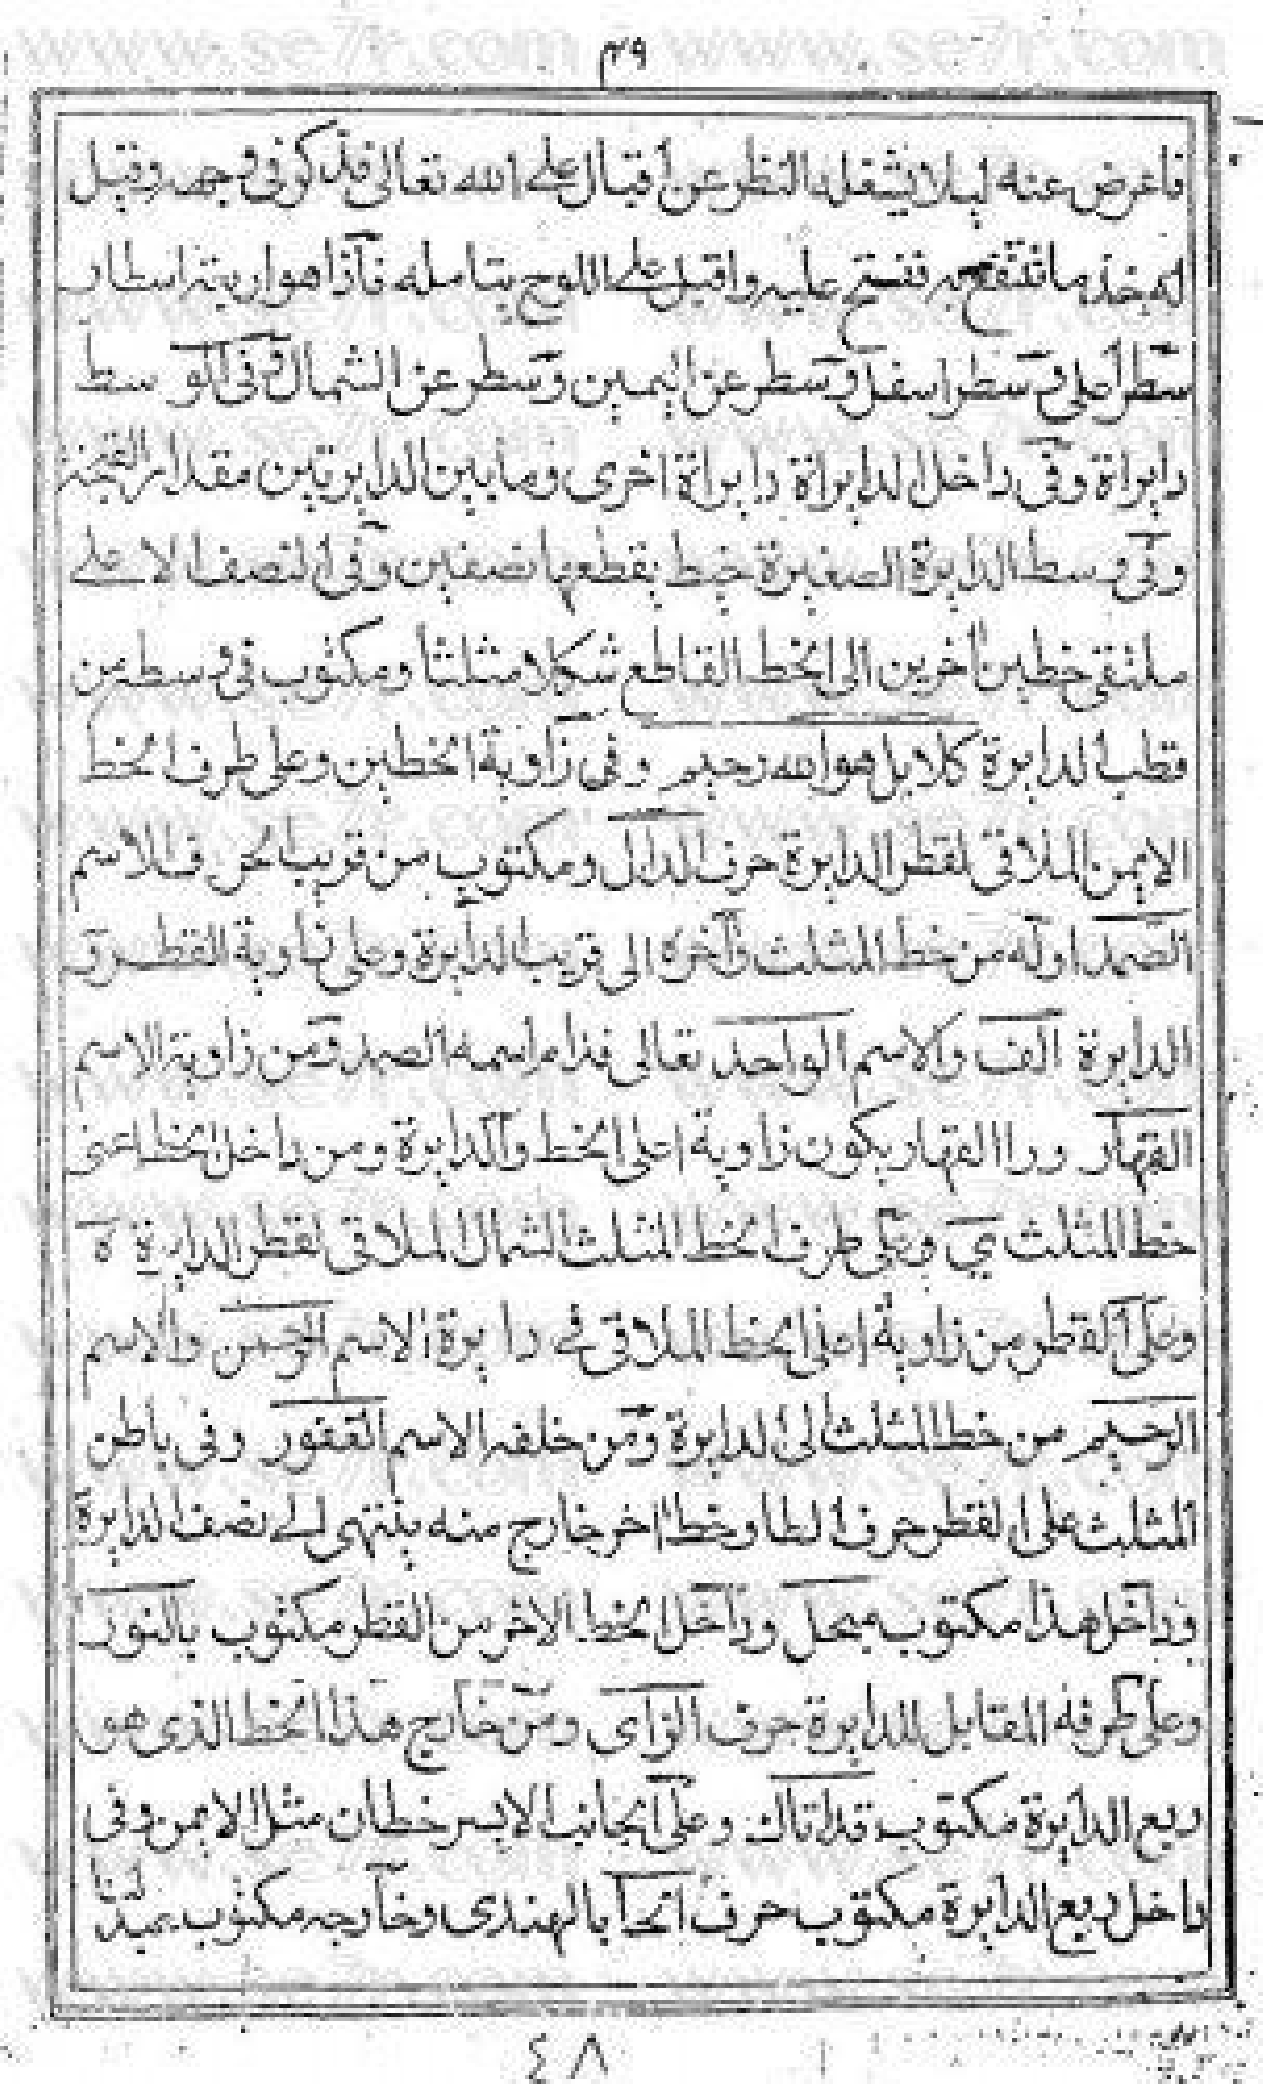 www.se7r.com www.se7r.com
٤٩
فاعرض عنه ليلا يشغله النظر عن اقبال على الله تعالى فذكر في وجهه وقيل
له خذ ما تنتفع به ففتح عليه واقبل على اللوح يتامله فاذا هو اربعة اسطار
سطر اعلى وسطر اسفل وسطر عن اليمين وسطر عن الشمال وفي الوسط
دايراة وفي داخل الدايراة دايراة اخرى وما بين الدايرتين مقدار
وفي وسط الدايرة الصغيرة خيط يقطعها نصفين وفي النصف الاعلى
ملتقى خطين أخرين الى الخط القاطع شكلا مثلثا ومكتوب في وسطه من
قطب الدايرة كلا بل هو الله رحيم وفي زاوية الخطين وعلى طرف الخط
الايمن الملاقي لقطر الدايرة حرف الدال ومكتوب من قريب الحرف الاسم
الصمد اوله من خط المثلث وآخره الى قريب الدايرة وعلى زاوية القطر
الدايرة الف والاسم الواحد تعالى قدام اسمه الصمد ومن زاوية الاسم
القهار ورا القهار يكون زاوية اعلى الخط والدايرة ومن داخل الخط اعنى
خط المثلث ي وعلى طرف الخط المثلث الشمال الملاقي لقطر الدايرة ة
وعلى القطر من زاوية اعلى الخط الملاقي في دايرة الاسم الرحمن والاسم
الرحيم من خط المثلث الى الدايرة ومن خلفه الاسم الغفور وفي باطن
المثلث على القطر حرف الطا وخط اخر خارج منه ينتهى الى نصف الدايرة
وداخل هذا مكتوب وداخل الخط الاخر من القطر مكتوب بالنور
وعلى طرفه المقابل للدايرة حرف الزاي ومن خارج هذا الخط الذى هو
ربع الدايرة مكتوب وعلى الجانب الايسر خطان مثل الايمن وفي
داخل ربع الدايرة مكتوب حرف الحا بالهندى وخارجه مكتوب
٤٨